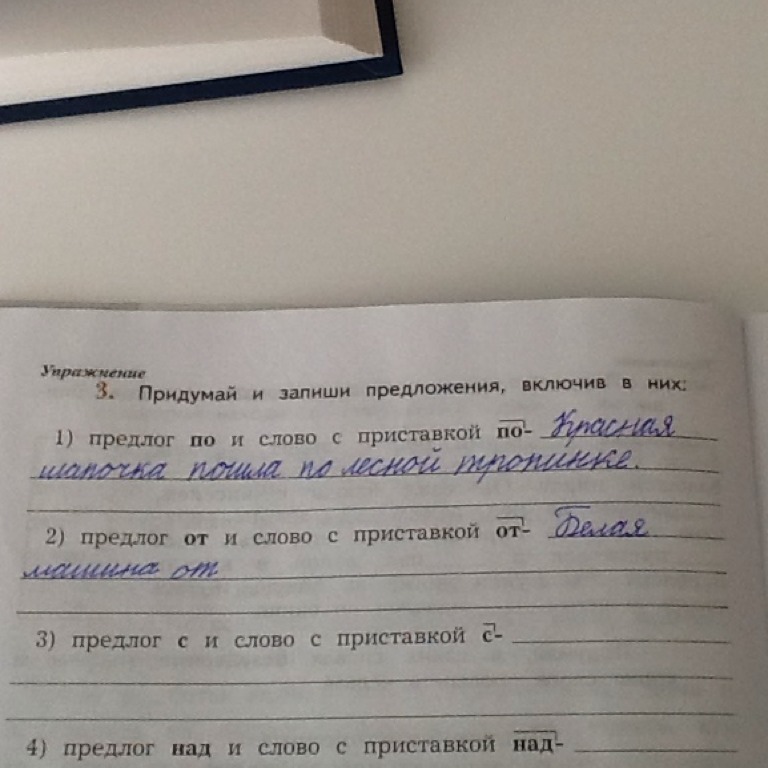 Упражнение
3. Придумай и запиши предложения, включив в них:
1) предлог по и слово с приставкой по- Красная
шапочка пошла по лесной тропинке.
2) предлог от и слово с приставкой от- Белая
машина от
3) предлог с и слово с приставкой с-
4) предлог над и слово с приставкой над-